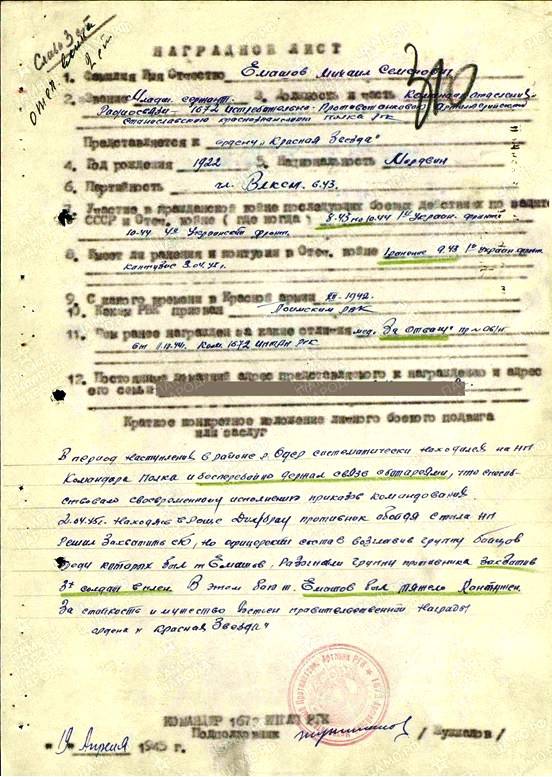 Слава 3 ст
отеч. война
2 ст
НАГРАДНОЙ ЛИСТ
1. Фамилия Имя Отчество Емашов Михаил Семенович
2. Звание Младш. сержант. 3. Должность и часть Командир отделения
Радиосвязи - 1672 Истребительно-Противотанкового Артиллерийского
Станиславского краснознаменного полка РГК
Представляется к ордену "Красная Звезда"
4. Год рождения 1922 5. Национальность Мордвин
6. Партийность чл. ВЛКСМ. 6.43.
7. Участие в гражданской войне последующих боевых действиях по защите
СССР и Отеч. войне (где когда) 8.43 по 10.44 1й Украин. фронт
10.44 4й Украинский фронт.
8. Имеет ли ранения и контузии в Отеч. войне 1 ранение 9.43 1й Украин фронт
контузия 2.04.45г.
9. С какого времени в Красной армии XII-1942.
10. Каким РВК призван РВК
11. Чем ранее награжден за какие отличия мед. "За Отвагу" пр-к 06/н
от 1.11.44. Ком. 1672 ИПТАП РГК
12. Постоянный домашний адрес представляемого к награждению и адрес
его семьи
Краткое конкретное изложение личного боевого подвига
или заслуг
В период наступления в районе р. Одер систематически находился на НП
Командира Полка и бесперебойно держал связь с батареями, что способ-
ствовало своевременному исполнению приказов командования.
2.04.45г. находясь в противник обойдя с тыла НП
Решил захватить его, но офицерский состав возглавив группу бойцов
среди которых был т. Емашов. Разогнали группу противника захватив
3х солдат в плен. В этом бою т. Емашов был тяжело Контужен.
За стойкость и мужество достоин правительственной награды
ордена "Красная Звезда"
КОМАНДИР 1672 ИПТАП РГК
Подполковник / Жукалов /
"19" Апреля 1945 г.